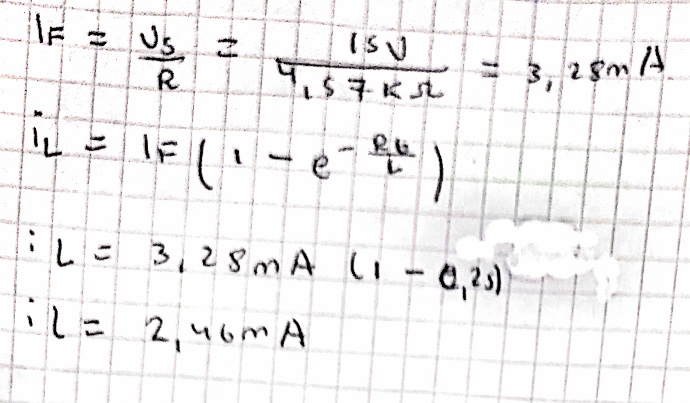 IF = Us/R = 15V/4,57KΩ = 3,28mA
iL = IF(1 - e^-Rt/L)
iL = 3,28mA (1 - 0,25)
iL = 2,46mA